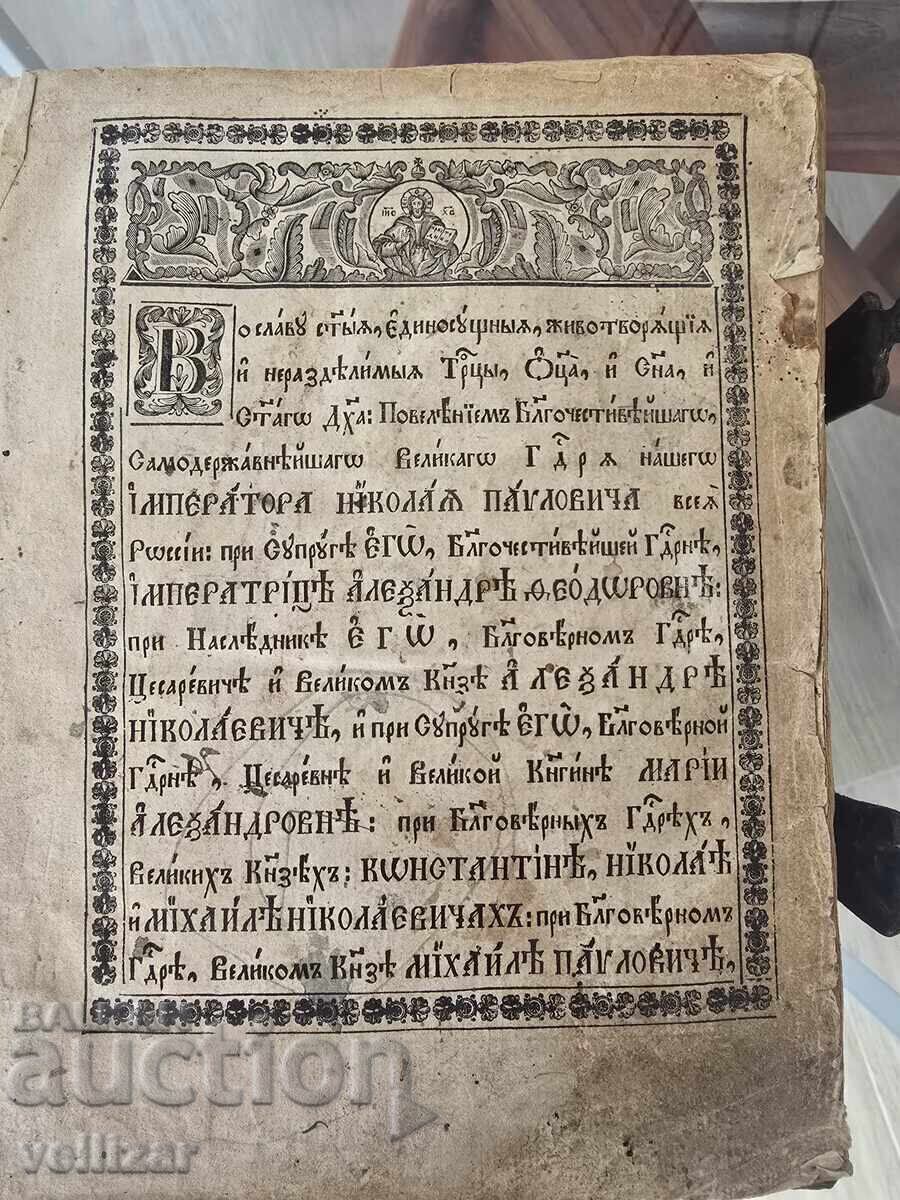 І҃ИС ХС
Во сла́ву ст҃ы́я, є҆диносꙋ́щныя, животворѧ́щїѧ
и҆ нераздѣ́лимыѧ Трⷪ҇цы, Ѻ҆ц҃а̀, и҆ Сн҃а, и҆
Ст҃а́гѡ Дх҃а: Повелѣ́нїемъ Бл҃гочести́вѣйшагѡ,
Самодержа́внѣйшагѡ Вели́кагѡ Гдⷭ҇рѧ на́шегѡ
І҆МПЕРА́ТОРА НІКОЛА́Ѧ ПА́ѴЛОВИЧА всеѧ̀
Рѡссі́и: при Сꙋпрꙋ́гѣ Є҆ГѠ̀, Бл҃гочести́вѣйшей Гдⷭ҇рнѣ,
І҆МПЕРАТРІ́ЦѢ А҆ЛЕѮА́НДРѢ ѲЕО́ДѠРОВНѢ:
при Наслѣ́дникѣ Є҆ГѠ̀, Бл҃говѣ́рномъ Гдⷭ҇рѣ,
Цесаре́вичѣ и҆ Вели́комъ Кн҃зѣ А҆ЛЕѮА́НДРѢ
НІКОЛА́ЕВИЧѢ, и҆ при Сꙋпрꙋ́гѣ Є҆ГѠ̀, Бл҃говѣ́рной
Гдⷭ҇рнѣ, Цесаре́внѣ и҆ Вели́кой Кн҃ги́нѣ МАРІ́И
А҆ЛЕѮА́НДРОВНѢ: при Бл҃говѣ́рныхъ Гдⷭ҇рехъ,
Вели́кихъ Кн҃зе́хъ: КѠНСТАНТІ́НѢ, НІКОЛА́Ѣ
и҆ МІХАИ́ЛѢ НІКОЛА́ЕВИЧАХЪ: при Бл҃говѣ́рномъ
Гдⷭ҇рѣ, Вели́комъ Кн҃зѣ МІХАИ́ЛѢ ПА́ѴЛОВИЧѢ,
auction
vellizar